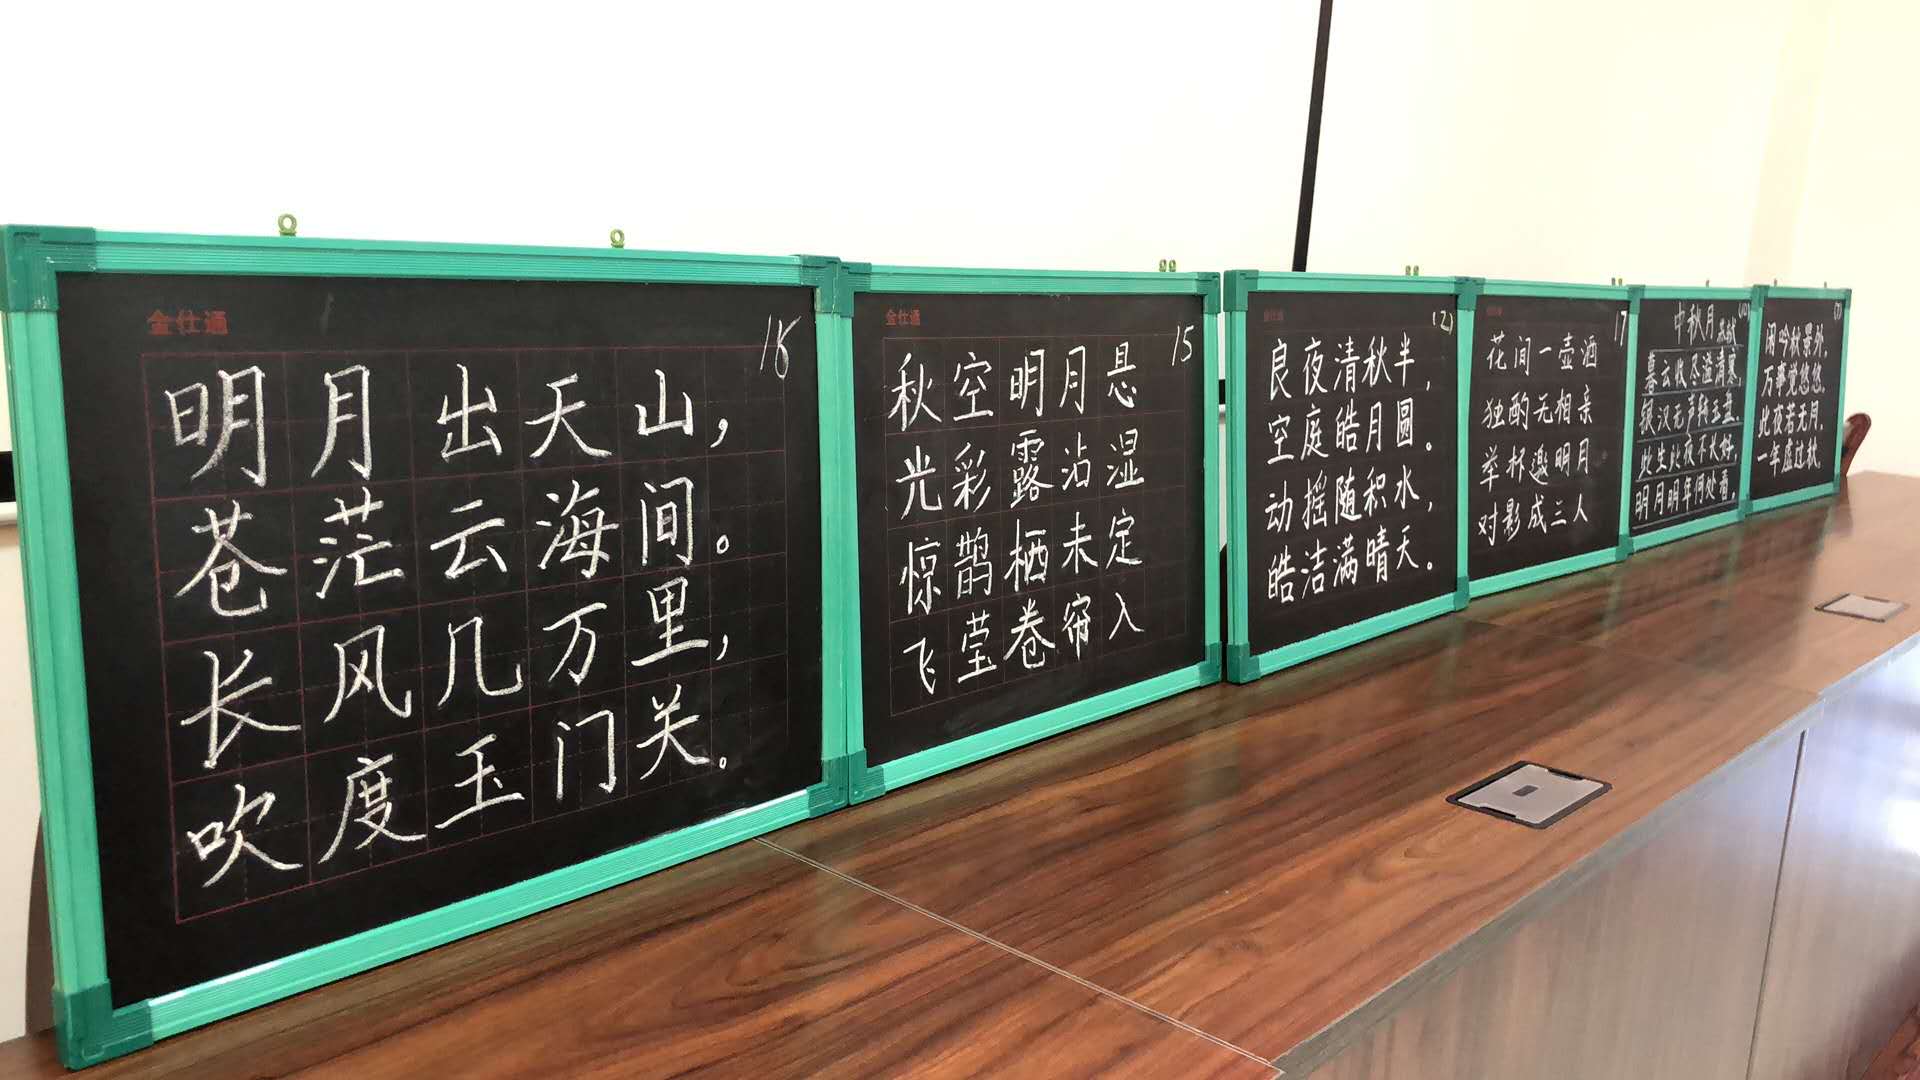 金仕通
18
明月出天山，
苍茫云海间。
长风几万里，
吹度玉门关。
金仕通
15
秋空明月悬
光彩露沾湿
惊鹊栖未定
飞莹卷帘入
(2)
良夜清秋半，
空庭皓月圆。
动摇随积水，
皓洁满晴天。
17
花间一壶酒
独酌无相亲
举杯邀明月
对影成三人
中秋月
暮云收尽溢清寒，
银汉无声转玉盘。
此生此夜不长好，
明月明年何处看。
闲吟秋景外，
万事觉悠悠。
此夜若无月，
一年虚过秋。